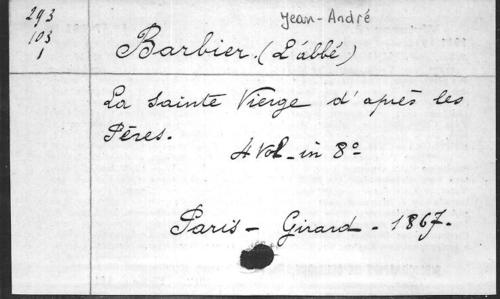 293
103
1
Jean-André
Barbier. (L'abbé)
La Sainte Vierge d'après les
Pères.
4 Vol - in 8º
Paris - Girard - 1867.